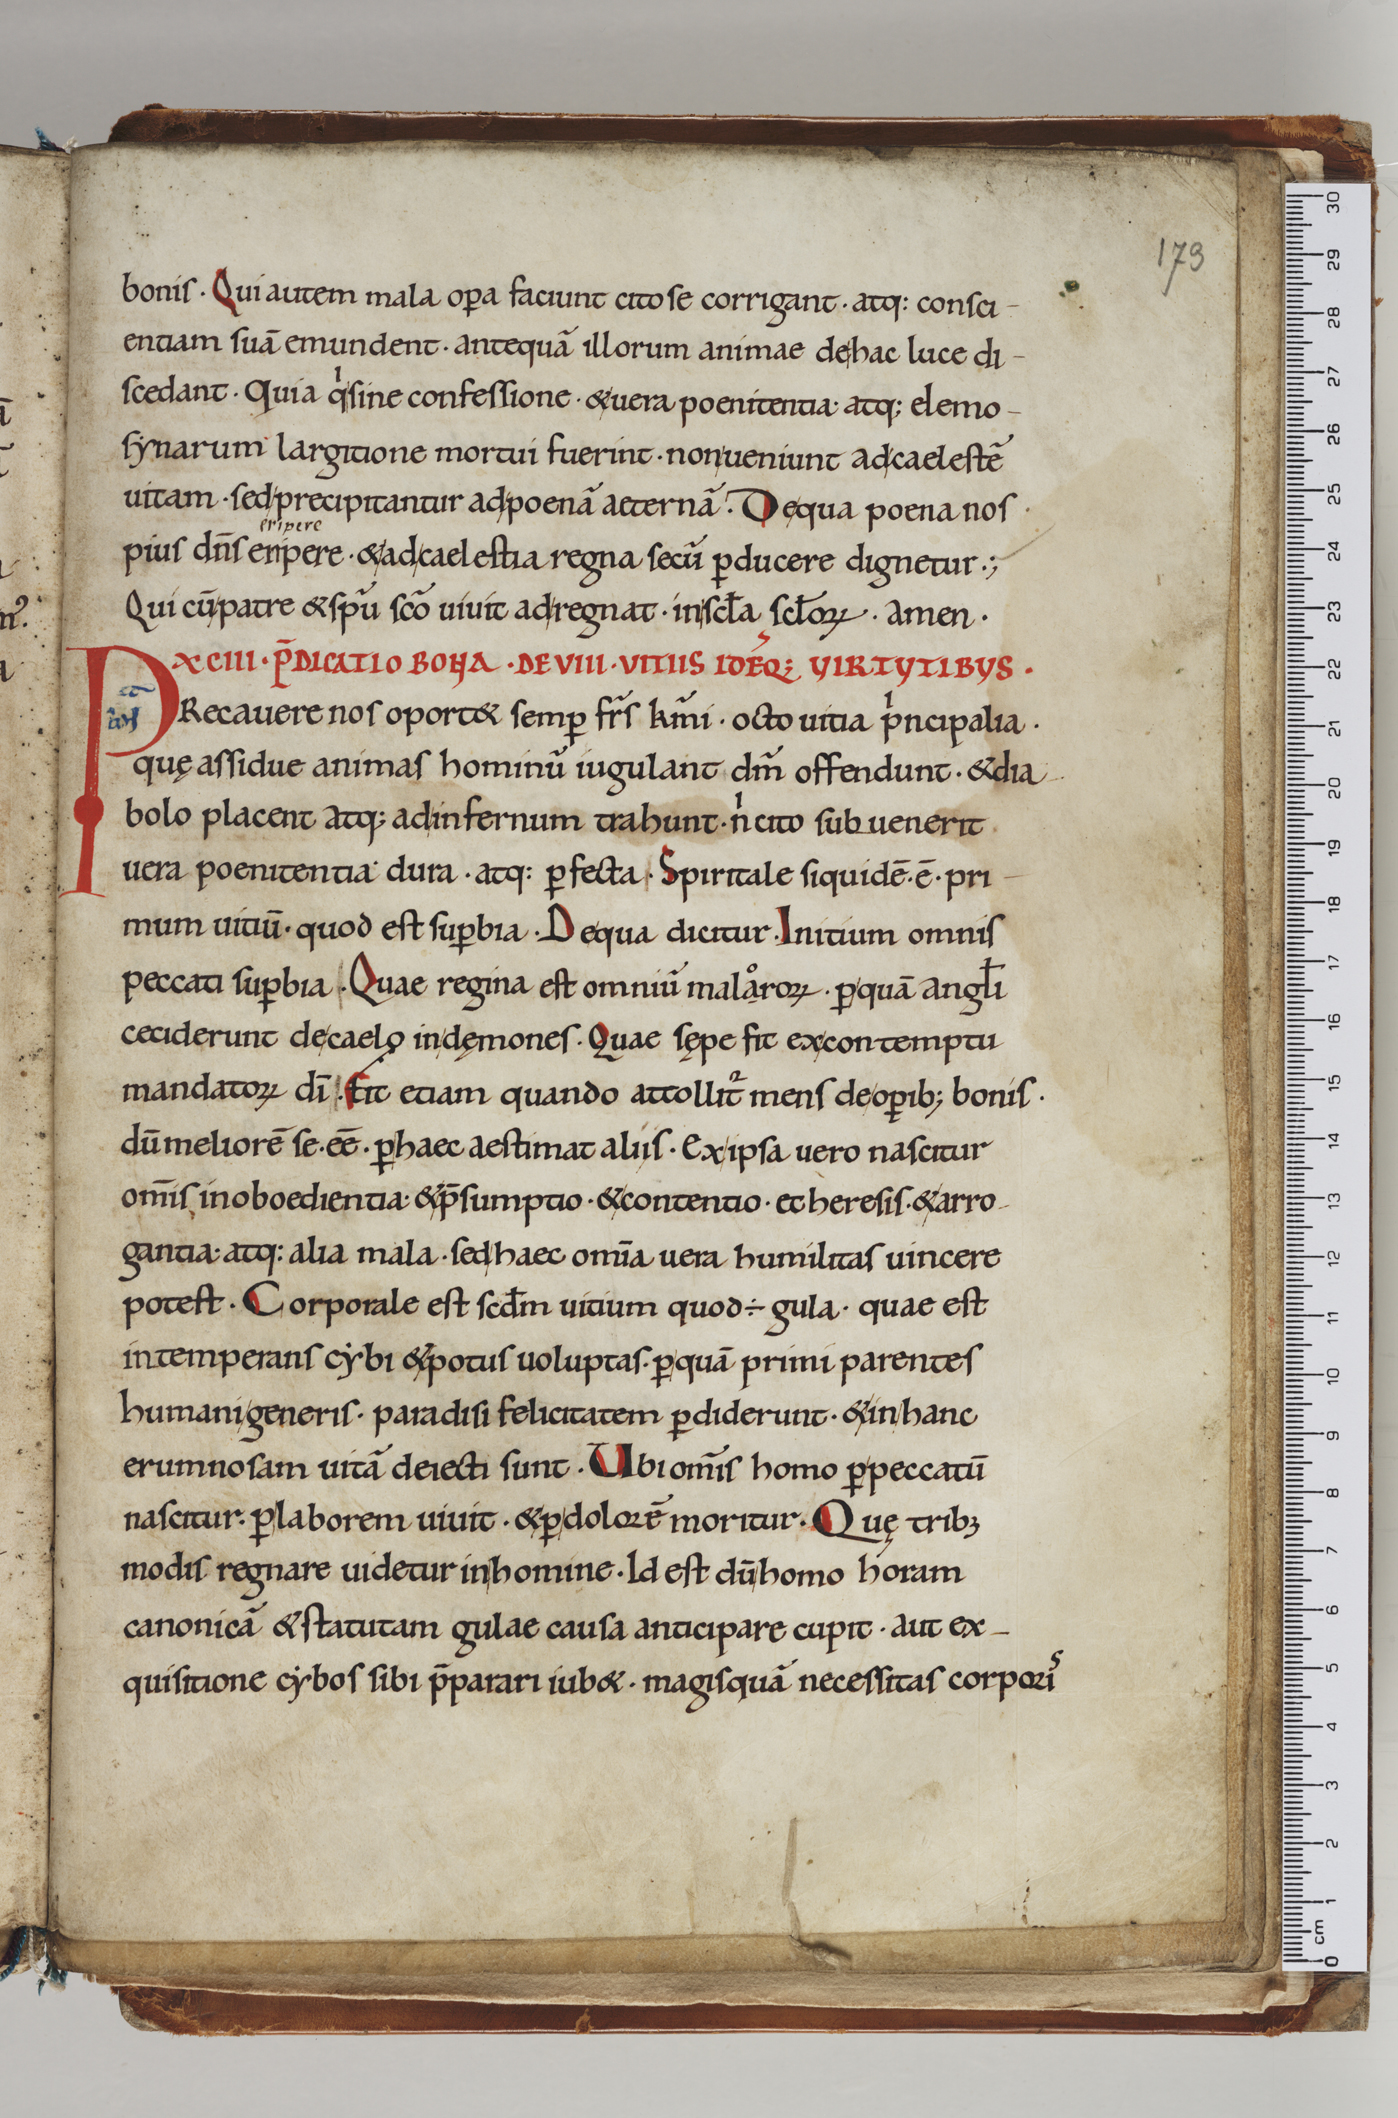 173
bonis · Qui autem mala oꝑa faciunt cito se corrigant · atq: consci-
entiam suā emundent · antequā illorum animae de hac luce di-
scedant · Quia qͥ sine confessione · & uera poenitentia · atq; elemo-
synarum largitione mortui fuerint · non ueniunt ad caelestē
uitam · sed precipitantur ad poenā aeternā · De qua poena nos
eripere
pius dn̄s eripere · & ad caelestia regna secū ꝑducere dignetur ·;
Qui cū patre & spū scō uiuit ad regnat · in scła scłoꝝ · amen ·
XCIII · P̄DICATIO BONA · DE VIII · VITIIS IDĒQ; VIRTVTIBVS ·
PRecauere nos oport& semꝑ fr̄s km̄i · octo uitia pͥncipalia ·
quę assidue animas hominū iugulant dm̄ offendunt · & dia
bolo placent atq; ad infernum trahunt · nͥ cito subuenerit
uera poenitentia dura · atq: ꝑfecta · Spiritale siquidē · ē · pri-
mum uitiū · quod est suꝑbia · De qua dicitur · Initium omnis
peccati suꝑbia · Quae regina est omniū maloroꝝ · ꝑ quā angłi
ceciderunt de caelo in dęmones · Quae sępe fit ex contemptu
mandatoꝝ dī · Fit etiam quando attollit᷑ mens de oꝑib; bonis ·
dū meliorē se · eē · ꝑ haec aestimat aliis · Ex ipsa uero nascitur
om̄is inoboedientia · & p̄sumptio · & contentio · et heresis · & arro-
gantia · atq: alia mala · sed haec om̄ia uera humilitas uincere
potest · Corporale est scdm̄ uitium quod ÷ gula · quae est
intemperans cẏbi & potus uoluptas · ꝑ quā primi parentes
humani generis · paradisi felicitatem ꝑdiderunt · & in hanc
erumnosam uitā deiecti sunt · Ubi om̄is homo ꝑ peccatū
nascitur · ꝑ laborem uiuit · & ꝑ dolorē moritur · Quę trib;
modis regnare uidetur in homine · Id est dū homo horam
canonicā & statutam gulae causa anticipare cupit · aut ex-
quisitione cẏbos sibi p̄parari iub& · magis quā necessitas corporis